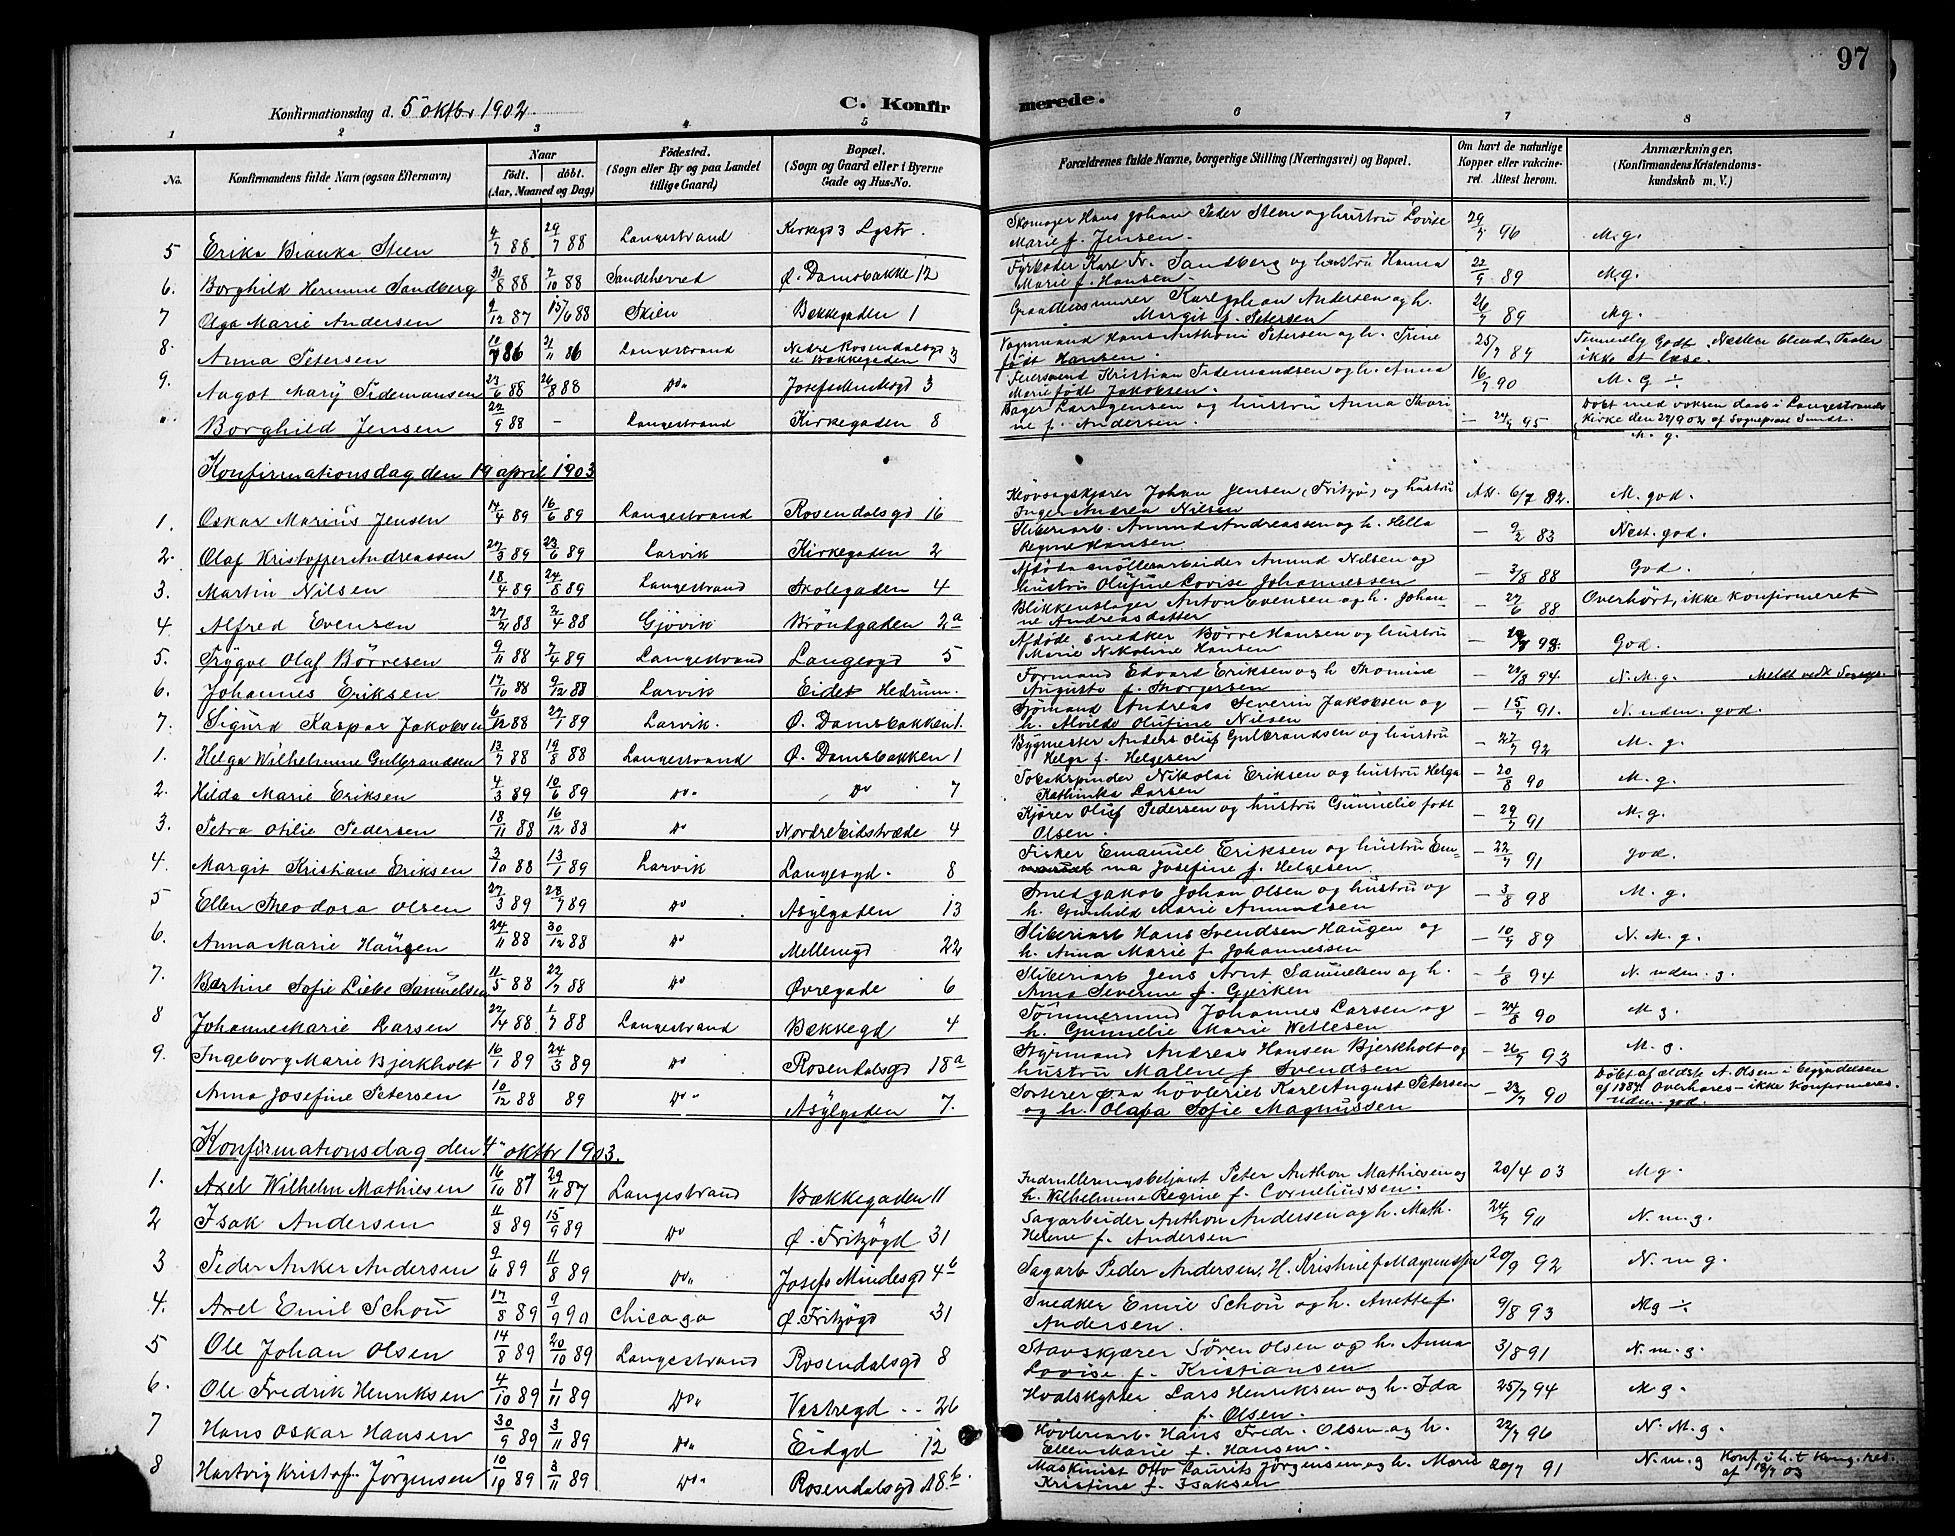 97
Konfirmationsdag d. 5 oktbr 1902.
C. Konfirmerede.
1 2 3 4 5 6 7 8
No. Konfirmandens fulde Navn (ogsaa Efternavn)
Naar født. døbt. (Aar, Maaned og Dag)
Fødested. (Sogn eller By og paa Landet tillige Gaard)
Bopæl. (Sogn og Gaard eller i Byerne Gade og Hus-No.
Forældrenes fulde Navne, borgerlige Stilling (Næringsvei) og Bopæl.
Om havt de naturlige Kopper eller vakcineret. Attest herom.
Anmærkninger, (Konfirmandens Kristendomskundskab m. V.)
5 Erika Bianka Steen 4/7 88 29/7 88 Langestrand Kirkegd 3 Lystr. Skomager Hans Johan Peder Steen og hustru Lovise Marie f. Jensen. 96 M.g.
6. Borghild Hermine Sandberg 31/8 88 7/10 88 Sandeherred Ø. Damsbakke 12 Fyrbøder Karl N. Sandberg og hustru Hanna Marie f. Hansen 22/9 89 M.g.
7 Olga Marie Andersen 9/12 87 15/6 88 Skien Bækkegaden 1 Graastensmurer Karl Johan Andersen og h. Margit f. Petersen 26/7 89 Mg.
8. Anna Petersen 86 21/11 86 Langestrand Nedre Rosendalsgd 3 Vognmand Hans Anthoni Petersen og h. Trine født Hansen. 25/7 89 Temmelig Godt. Næsten blind. Taaler ikke at læse.
9. Aagot Mary Tidemansen 23/6 88 26/8 88 Do. Josefsmindegd 3 Feiersvend Kristian Tidemandsen og h. Anna Marie født Jakobsen. 16/7 90 M. G ÷
Borghild Jensen 22/9 88 – Langestrand Kirkegaden 8 Bager Lars Jensen og hustru Anna Thorine f. Andersen. – 24/7 95 Døbt med voksen daab i Langestrands Kirke den 22/9 02 af Sogneprest Smidt. M. g.
Konfirmationsdag den 19 april 1903
1. Oskar Marius Jensen 14/4 89 16/6 89 Langestrand Rosendalsgd 16 Kløvsagskjører Johan Jensen (Fritzø) og hustru Inger Andrea Nilsen Att. 6/7 82. M. god.
2. Olaf Kristoffer Andreassen 27/3 89 23/6 89 Larvik Kirkegaden 2 Sliberiarb. Amund Andreassen og h. Helle Regine Hansen – 9/2 83 Nest. god.
3. Martin Nilsen 18/4 89 24/8 89 Langestrand Skolegaden 4 Afdøde møllearbeider Amund Nilsen og hustru Olufine Lovise Johannessen – 3/8 88 God.
4. Alfred Evensen 27/2 88 2/4 88 Gjøvik Brøndgaden 2a Blikkenslager Anton Evensen og h. Johanne Andreasdatter – 27/6 88 Overhørt, ikke konfirmeret
5. Trygve Olaf Børresen 9/11 88 7/4 89 Langestrand Langesgd 5 Afdøde snedker Børre Hansen og hustru Marie Nikoline Hansen God.
6. Johannes Eriksen 17/10 88 9/12 88 Larvik Eidet Hedrum. Formand Edvard Eriksen og h Thomine Augusta f. Thorgersen – 27/8 94 N. M. g.
7. Sigurd Kaspar Jakobsen 6/12 88 27/1 89 Larvik. Ø. Damsbakken 1. Sjømand Andreas Severin Jakobsen og h. Alvilde Olufine Nilsen – 15/7 91. N. uden. god.
1. Helga Wilhelmine Gulbrandsen 13/7 88 19/8 88 Langestrand Ø. Damsbakken 1 Bygmester Anders Oluf Gulbrandsen og hustru Helga f. Helgesen – 27/7 92 M. g.
2. Hilda Marie Eriksen 4/3 89 10/6 89 Do. Do 7 Tobakspinder Nikolai Eriksen og hustru Helga Kathinka Larsen – 20/8 90 M. g.
3. Petra Otilie Pedersen 18/11 88 16/12 88 Do Nordre Eidstræde 4 Kjører Oluf Pedersen og hustru Gunnelie født Olsen. – 29/7 91 M. g.
4. Margit Kristiane Eriksen 3/10 88 13/1 89 Larvik Langesgd. 8 Fisker Emanuel Eriksen og hustru Emma Josefine f. Helgesen. – 22/7 91 god.
5 Ellen Theodora Olsen 27/3 89 28/7 89 Do Asylgaden 13 Smed Jakob Johan Olsen og hustru og h. Gunhild Marie Amundsen – 3/8 98 M. g.
6. Anna Marie Haugen 24/11 88 30/12 88 Do Mellemgd 22 Sliberiarb Hans Svendsen Haugen og h. Anna Marie f. Johannessen – 10/9 89 N. M. g.
7. Bertine Sofie Liebe Samuelsen 11/5 88 22/7 88 Do Øvregade 6 Sliberiarb Jens Arnt Samuelsen og h. Anna Severine f. Gjerken – 1/8 94 N. uden. g.
8 Johanne Marie Larsen 22/4 88 1/7 88 Langestrand Bækkegd 4 Tømmermand Johannes Larsen og h. Gunnelie Marie Wetlesen – 24/8 90 M g.
9. Ingeborg Marie Bjerkholt 16/1 89 24/3 89 Do Rosendalsgd 18a Styrmand Andreas Hansen Bjerkholt og hustru Malene f. Svendsen – 26/7 93 M. g.
Anna Josefine Petersen 10/12 88 89 Do. Asylgaden 7. Sorterer paa høvleriet Karl August Petersen og h. Olava Sofie Magnussen – 23/7 90 Døbt af ældste A. Olsen i Begyndelsen af 1889. Overhøres – ikke Konfirmeres. uden. god.
Konfirmationsdag den 4 oktbr 1903.
1. Axel Wilhelm Mathiesen 16/10 87 29/11 87 Langestrand Bækkegaden 11 Indrulleringsbetjent Peter Anthon Mathiesen og h. Wilhelmine Regine f. Corneliussen. 20/4 03 M g.
2 Isak Andersen 11/8 89 15/9 89 Do Ø. Fritzøgd 31 Sagarbeider Anthon Andersen og h. Math. Helene f. Andersen 24/7 90 N. m. g.
3 Peder Anker Andersen 9/6 89 11/8 89 Do. Josefs Mindesgd 4b Sagarb Peder Andersen, H. Kristine f Magnussen 20/9 92 N. m g.
4. Axel Emil Schou 17/8 89 9/9 90 Chicago Ø. Fritzøgd 31 Snedker Emil Schou og h. Anette f. Andersen. 9/8 93 Mg ÷
5 Ole Johan Olsen 14/8 89 20/10 89 Langestrand Rosendalsgd 8 Stavskjærer Søren Olsen og h. Anna Lovise f. Kristiansen 3/8 91 N. m. g.
6. Ole Fredrik Henriksen 4/10 89 1/11 89 Do. Vestregd 26 Hvalskytter Lars Henriksen og h. Ida f. Olsen. 25/7 94 M g.
7 Hans Oskar Hansen 30/9 89 3/11 89 Do. Eidgd 12 Høvleriarb. Hans Fredr. Olsen og h. Ellen Marie f. Hansen. 22/7 96 N. M. g.
8 Hartvig Kristof. Jørgensen 10/10 89 3/11 89 Do. Rosendalsgd 18b. Maskinist Otto Laurits Jørgensen og h. Marie Kristine f. Isaksen 20/7 91 N. m. g Konf. i h. t. kong. res. af 18/7 03